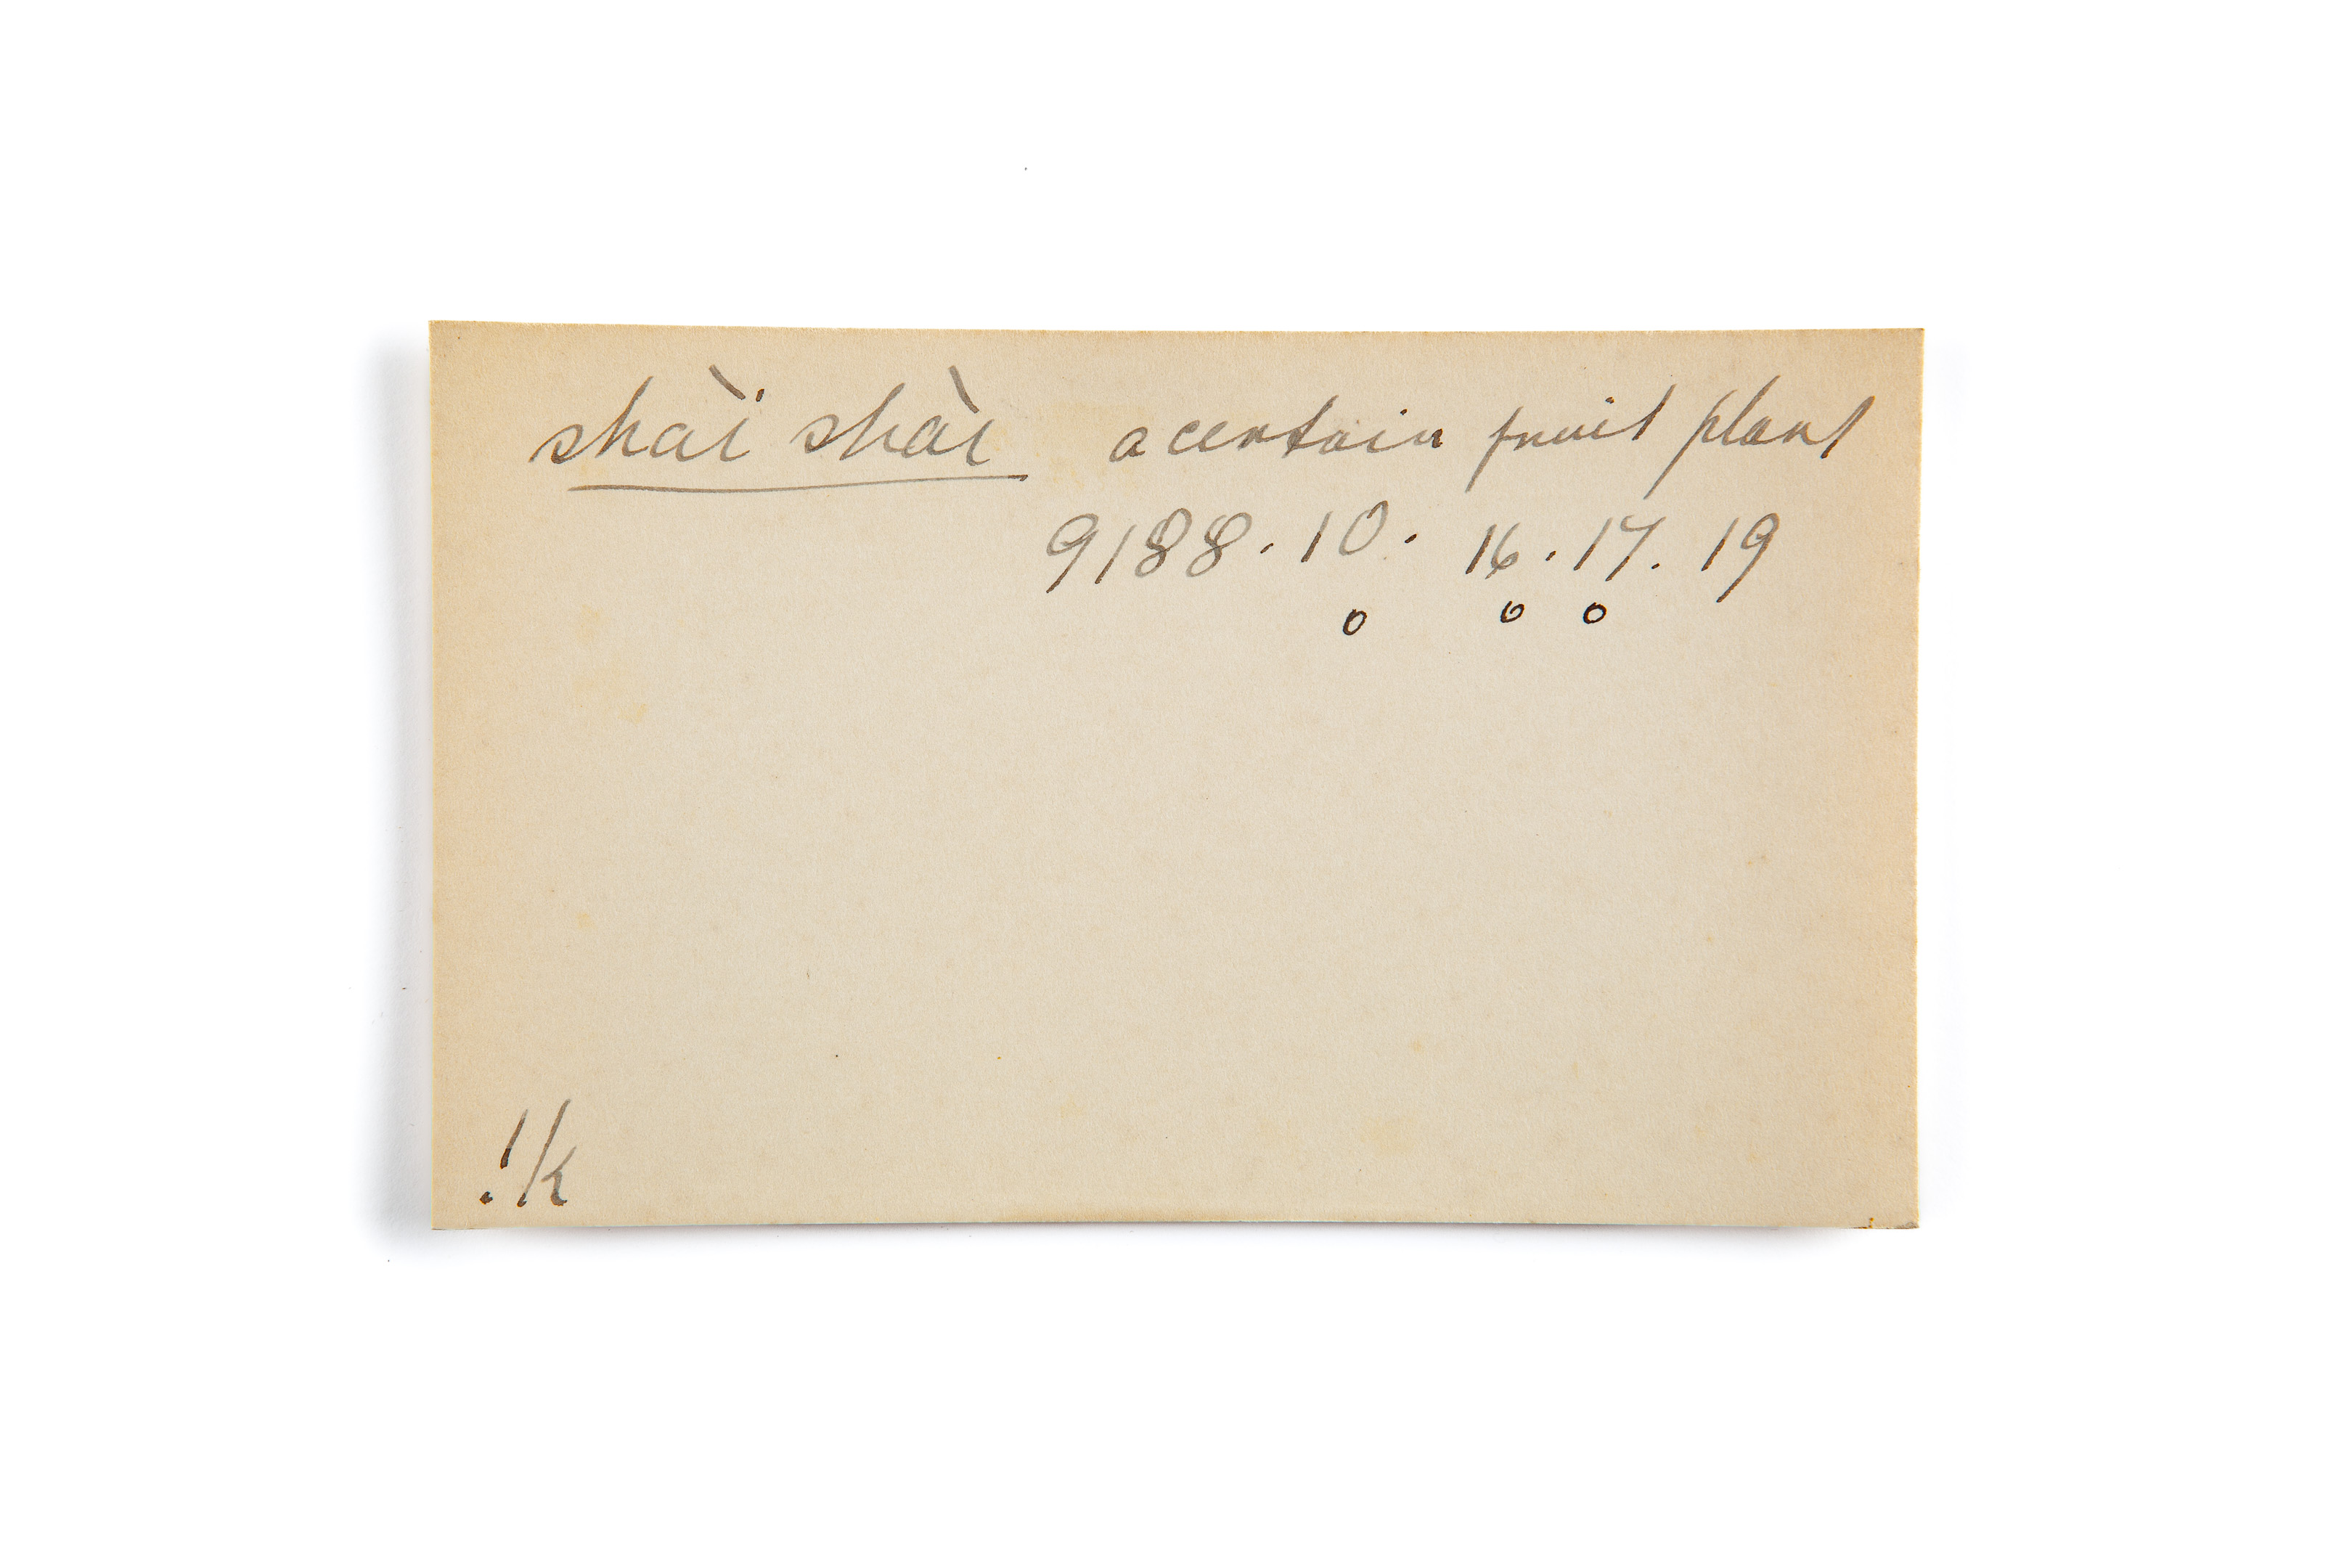 shài shàı a certain fruit plant
9188 . 10 . 16 . 17 . 19
o o o
!k